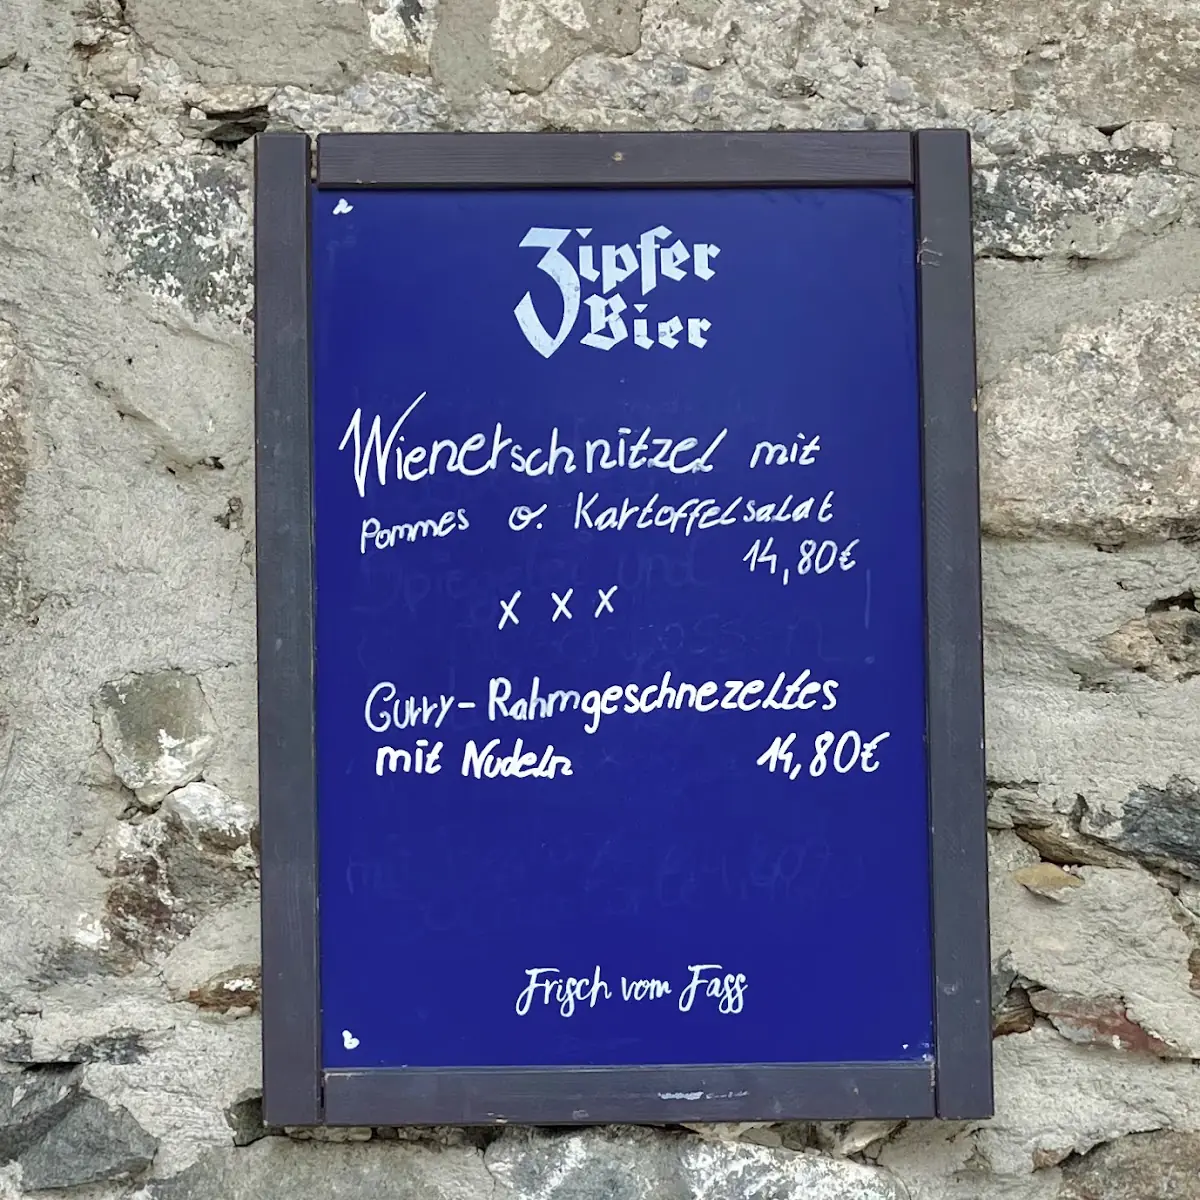 Zipfer
Bier
Wienerschnitzel mit
Pommes o. Kartoffelsalat
14,80€
x x x
Curry-Rahmgeschnezeltes
mit Nudeln 14,80€
Frisch vom Fass